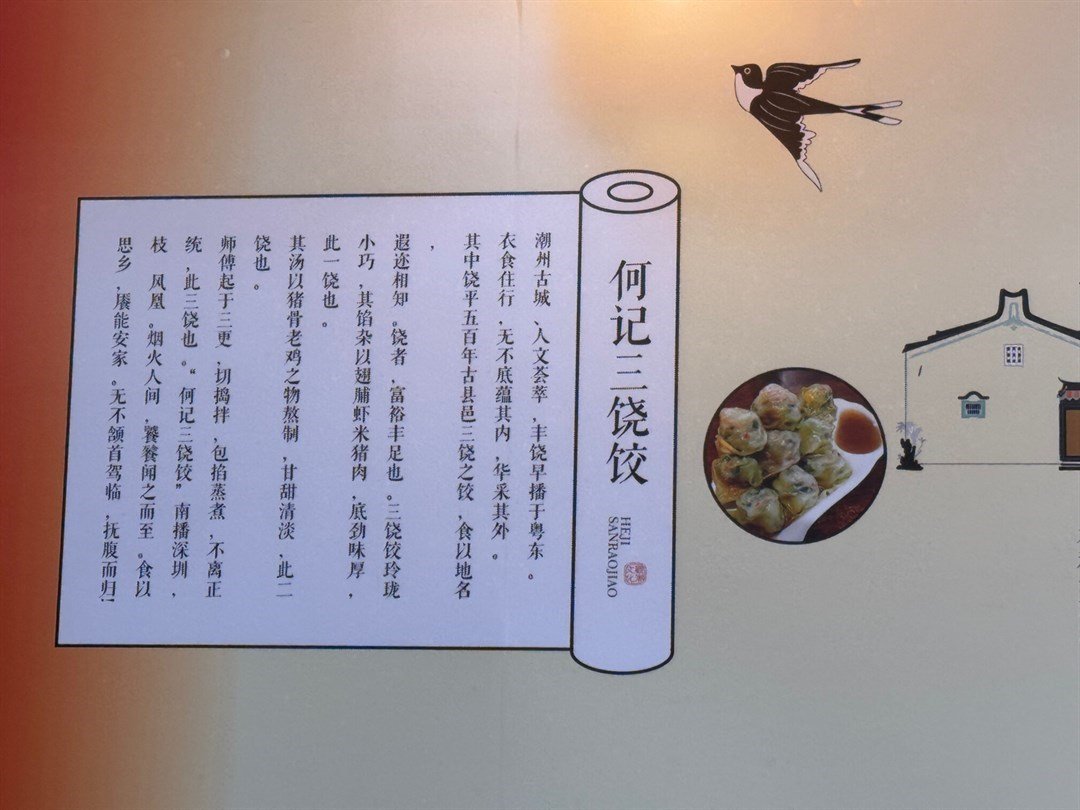 何记三饶饺
HEJI
SANRAOJIAO
潮州古城、人文荟萃，丰饶早播于粤东。
衣食住行，无不底蕴其内，华采其外。
其中饶平五百年古县邑三饶之饺，食以地名
，
遐迩相知。饶者，富裕丰足也。三饶饺玲珑
小巧，其馅杂以翅脯虾米猪肉，底劲味厚，
此一饶也。
其汤以猪骨老鸡之物熬制，甘甜清淡，此二
饶也。
师傅起于三更，切捣拌，包掐蒸煮，不离正
统，此三饶也。“何记三饶饺”南播深圳，
枝 凤凰。烟火人间，饕餮闻之而至。食以
思乡，餍能安家。无不颔首驾临，抚腹而归！